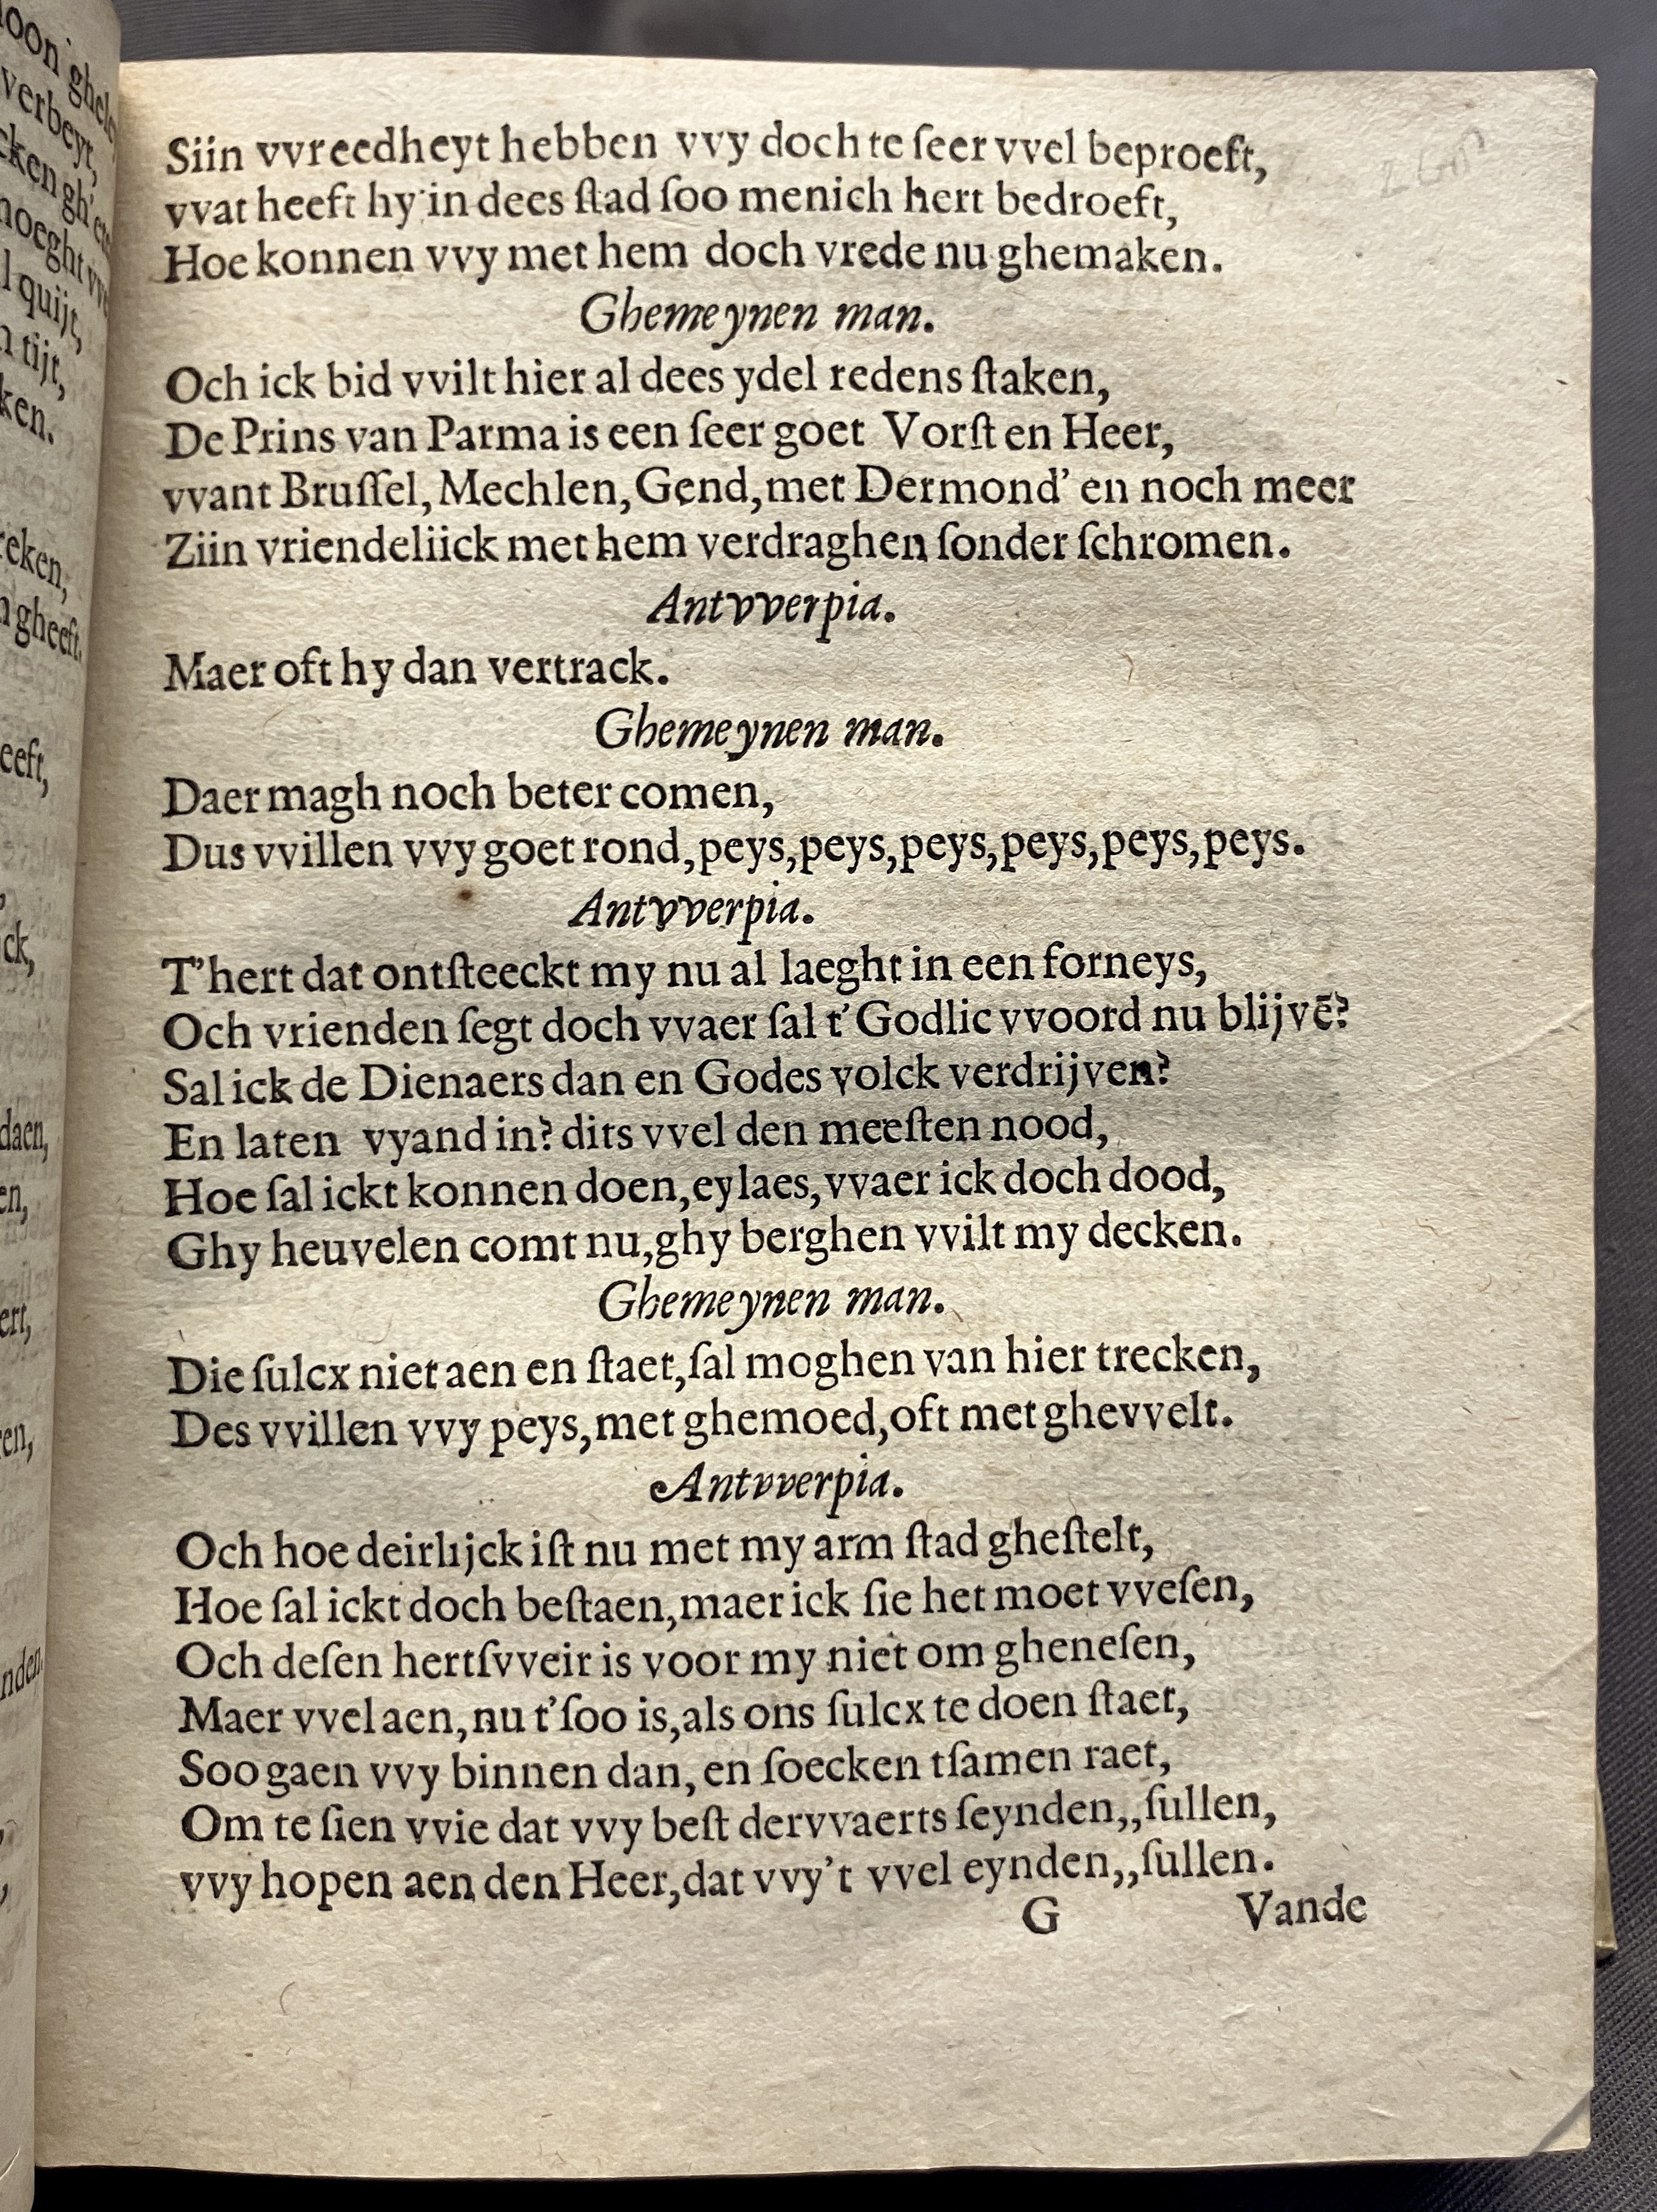 Siin vvreedheyt hebben vvy doch te ſeer vvel beproeft,
vvat heeft hy in dees ſtad ſoo menich hert bedroeft,
Hoe konnen vvy met hem doch vrede nu ghemaken.
Ghemeynen man.
Och ick bid vvilt hier al dees ydel redens ſtaken,
De Prins van Parma is een ſeer goet Vorſt en Heer,
vvant Bruſſel, Mechlen, Gend, met Dermond’ en noch meer
Ziin vriendeliick met hem verdraghen ſonder ſchromen.
Antvverpia.
Maer oft hy dan vertrack.
Ghemeynen man.
Daer magh noch beter comen,
Dus vvillen vvy goet rond, peys, peys, peys, peys, peys, peys.
Antvverpia.
T’hert dat ontſteeckt my nu al laeght in een forneys,
Och vrienden ſegt doch vvaer ſal t’Godlic vvoord nu blijvē?
Sal ick de Dienaers dan en Godes volck verdrijven?
En laten vyand in? dits vvel den meeſten nood,
Hoe ſal ickt konnen doen, eylaes, vvaer ick doch dood,
Ghy heuvelen comt nu, ghy berghen vvilt my decken.
Ghemeynen man.
Die ſulcx niet aen en ſtaet, ſal moghen van hier trecken,
Des vvillen vvy peys, met ghemoed, oft met ghevvelt.
Antvverpia.
Och hoe deirlijck iſt nu met my arm ſtad gheſtelt,
Hoe ſal ickt doch beſtaen, maer ick ſie het moet vveſen,
Och deſen hertſvveir is voor my niet om gheneſen,
Maer vvel aen, nu t’ſoo is, als ons ſulcx te doen ſtaet,
Soo gaen vvy binnen dan, en ſoecken tſamen raet,
Om te ſien vvie dat vvy beſt dervvaerts ſeynden,, ſullen,
vvy hopen aen den Heer, dat vvy’t vvel eynden,, ſullen.
G Vande